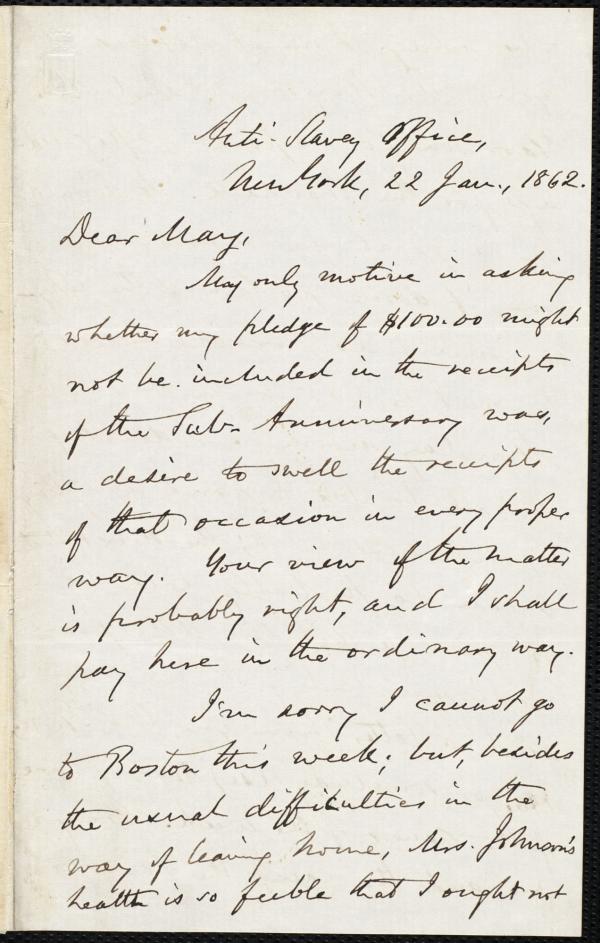 Anti-Slavery Office,
New York, 22 Jan., 1862.
Dear May,
My only motive in asking
whether my pledge of $100.00 might
not be included in the receipts
of the Sub. Anniversary was,
a desire to swell the receipts
of that occasion in every proper
way. Your view of the matter
is probably right, and I shall
pay here in the ordinary way.
I'm sorry I cannot go
to Boston this week; but, besides
the usual difficulties in the
way of leaving home, Mrs. Johnson's
health is so feeble that I ought not